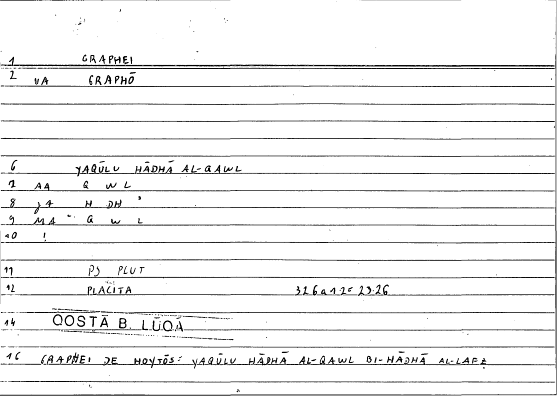 1 GRAPHEI
2 VA GRAPHŌ
6 YAQŪLU HĀDHĀ AL-QAWL
7 AA Q W L
8 JA H DH ʾ
9 MA Q W L
10 !
11 PS PLUT
12 PLACITA 326a12 23.26
14 QOSTĀ B. LŪQĀ
16 GRAPHEI DE HOYTŌS: YAQŪLU HĀDHĀ AL-QAWL BI-HĀDHĀ AL-LAFẒ